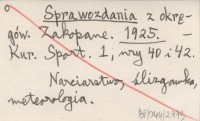 o
Sprawozdania z okrę-
gów. Zakopane. 1925. -
Kur. Sport. 1, nry 40 i 42.
Narciarstwo, ślizgawka,
meteorologia.